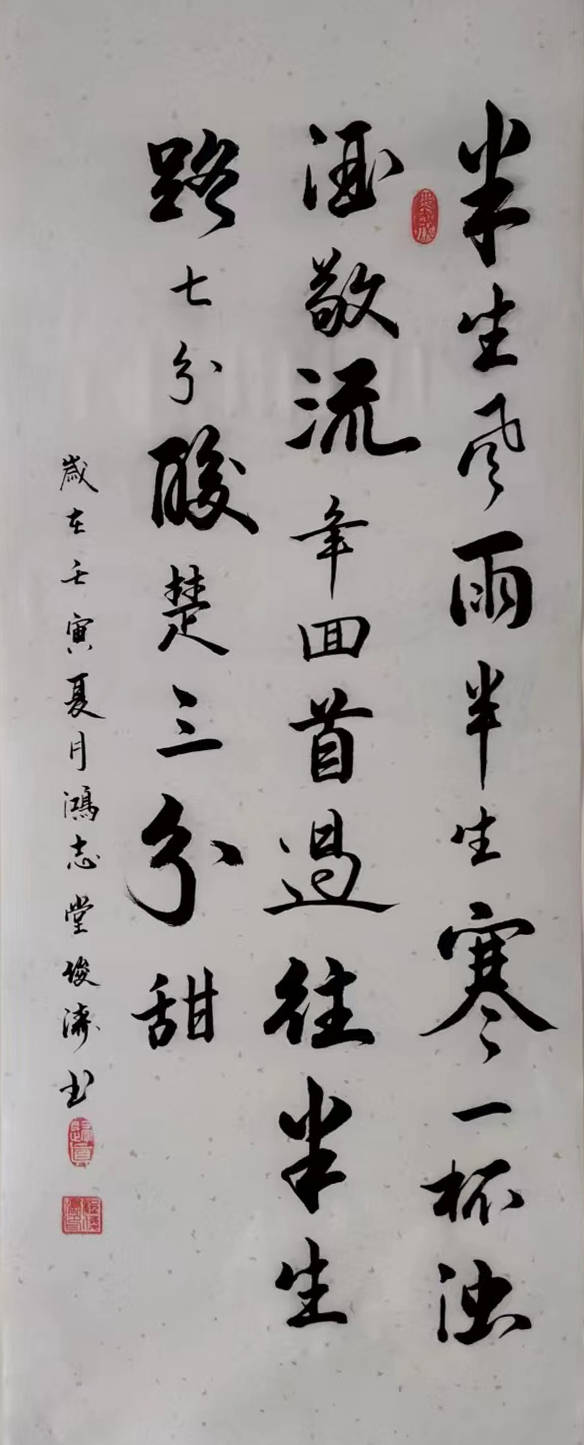 半生风雨半生寒一杯浊
酒敬流年回首过往半生
路七分酸楚三分甜
岁在壬寅夏月鸿志堂俊涛书